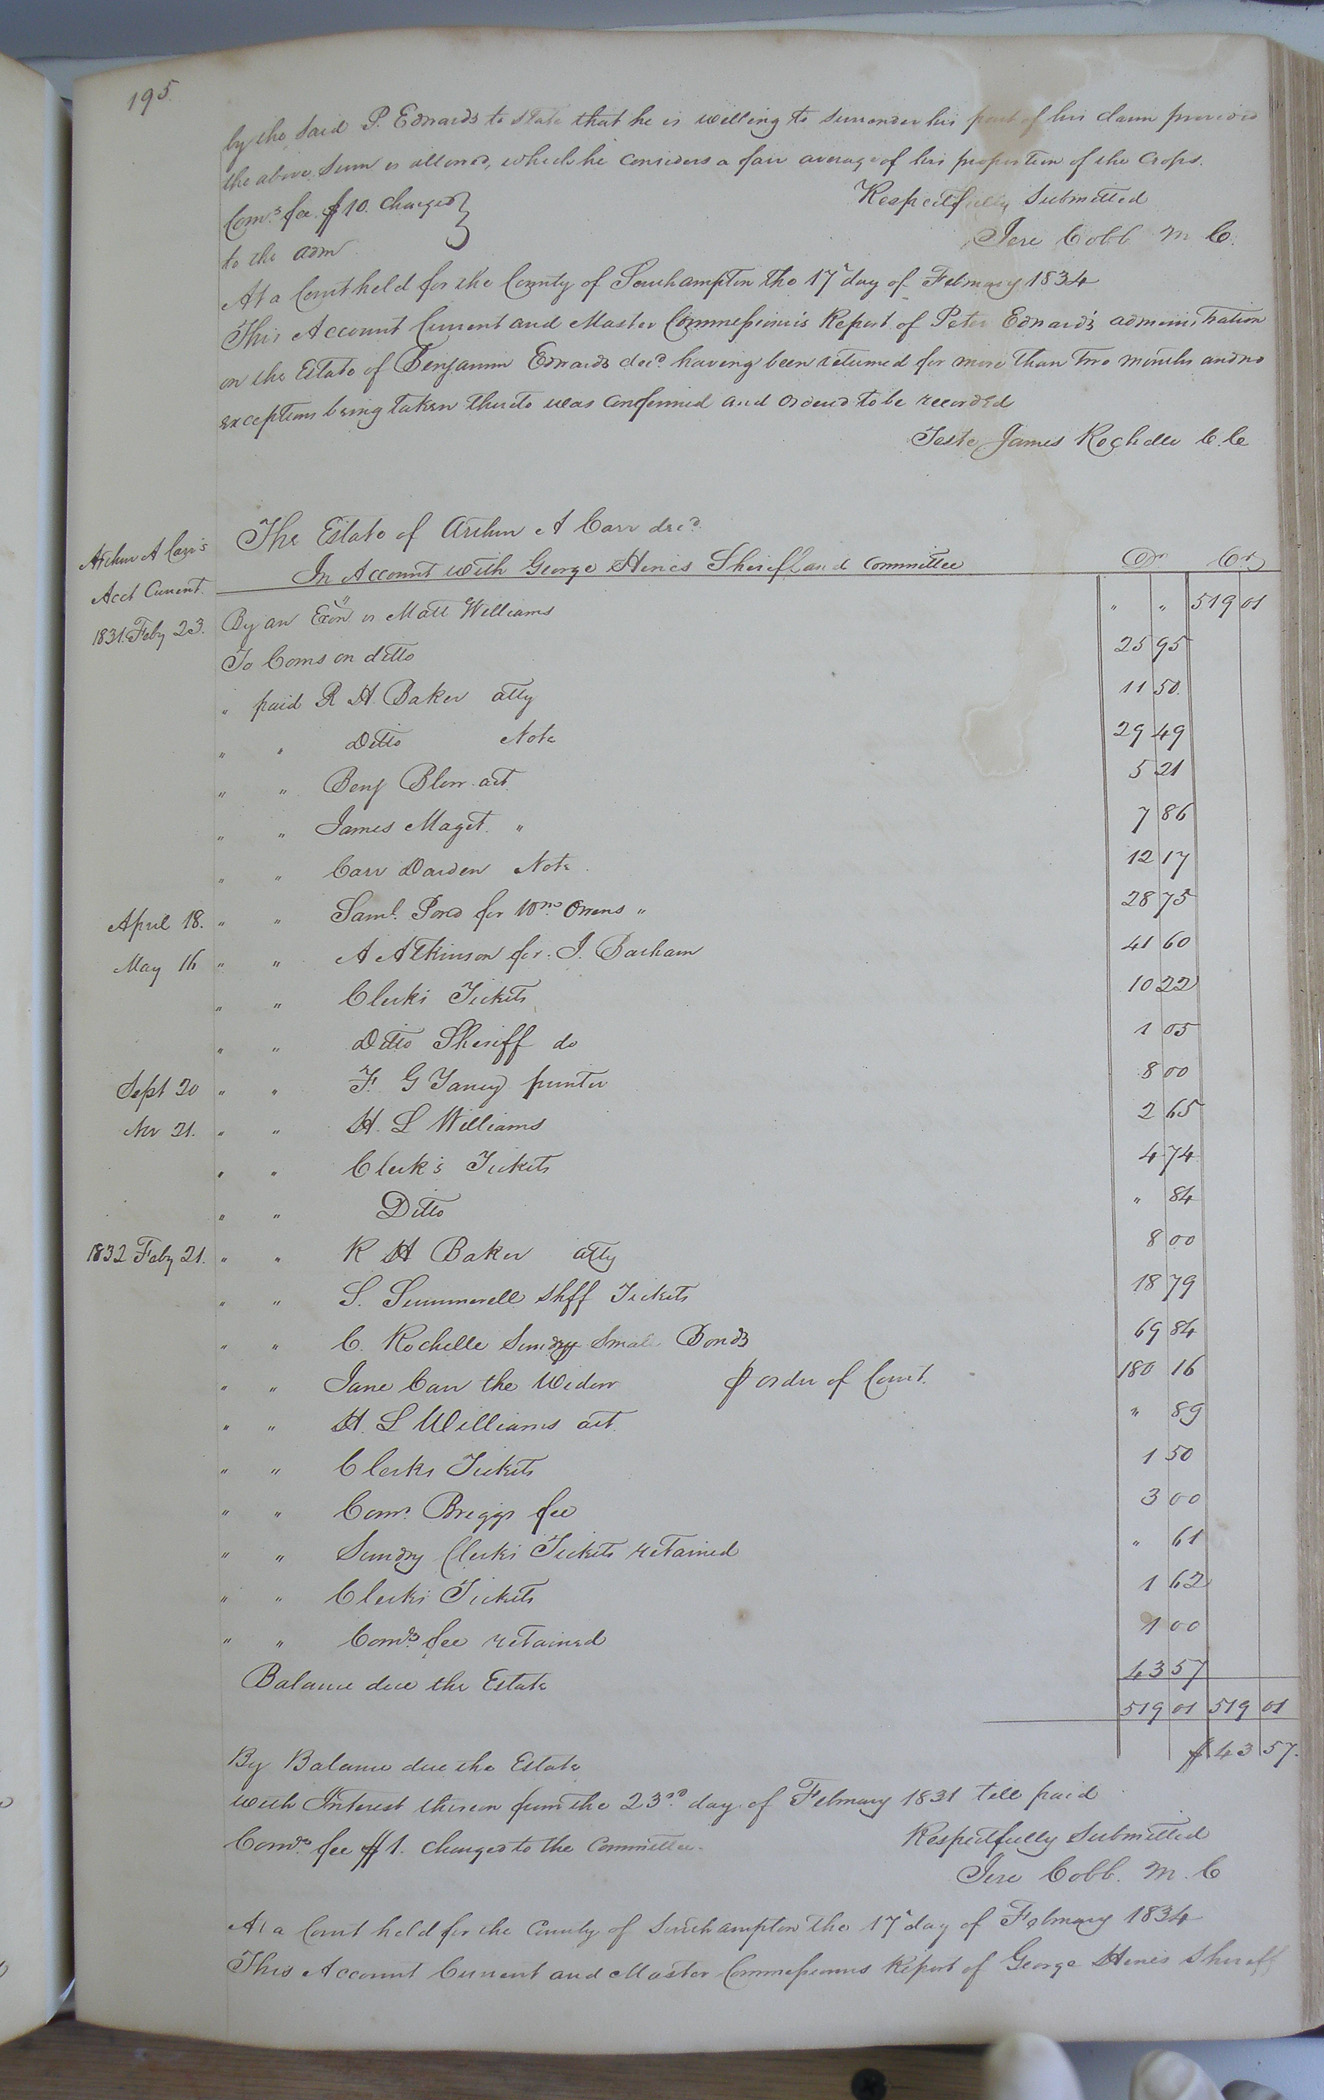 195.
by the said P. Edwards to state that he is willing to surrender his part of his claim provided
the above sum is allowed, which he considers a fair average of his proportion of the crops.
Comrs fee $10. charged } Respectfully Submitted
to the adm Jere Cobb M C.
At a Court held for the County of Southampton the 17th day of February 1834
This Account Current and Master Commissioners Report of Peter Edwards administration
on the Estate of Benjamin Edwards decd. having been returned for more than two months and no
exceptions being taken thereto was confirmed and ordered to be recorded
Teste James Rochelle C. C
Arthur A Carr's The Estate of Arthur A Carr decd.
Acct Current. In Account with George Hines Sheriff and Committee Dr Cr
1831 Feby 23. By an Exon vs Matt Williams " " 519 01
To Coms on ditto 25 95
" paid R H Baker atty 11 50.
" " Ditto Note 29 49
" " Benj Blow act. 5 21
" " James Maget. " 7 86
" " Carr Darden Note 12 17
April 18. " " Saml. Pond for Wm. Owens " 28 75
May 16 " " A Atkinson for J. Barham 41 60
" " Clerks Tickets 10 22
" " Ditto Sheriff do 1 05
Sept 20 " " F. G Yancy printer 8 00
Nov 21. " " H. L Williams 2 65
" " Clerk's Tickets 4 74
" " Ditto " 84
1832 Feby 21. " " R H Baker atty 8 00
" " S. Summerell Shff Tickets 18 79
" " C. Rochelle Sundry Small Bonds 69 84
" " Jane Carr the Widow $ order of Court. 180 16
" " H. L Williams act. " 89
" " Clerks Tickets 1 50
" " Comr. Briggs fee 3 00
" " Sundry Clerks Tickets retained " 61
" " Clerks Tickets 1 62
" " Comrs. fee retained 1 00
Balance due the Estate 43 57
519 01 519 01
By Balance due the Estate $ 43 57.
with Interest thereon from the 23rd day of February 1831 till paid
Comrs. fee $1. charged to the Committee. Respectfully Submitted
Jere Cobb. M. C
At a Court held for the County of Southampton the 17th day of February 1834
This Account Current and Master Commissioners Report of George Hines Sheriff